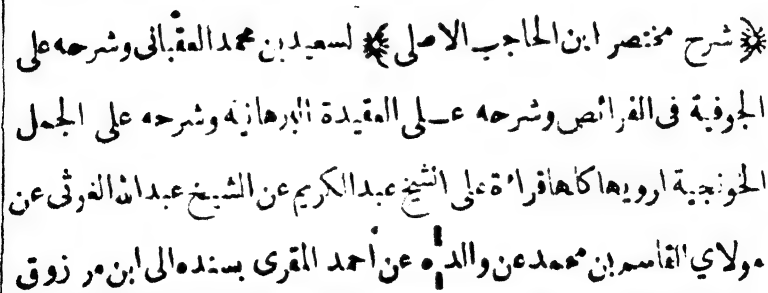 ﴿شرح مختصر ابن الحاجب الاصلى﴾ لسعيد بن محمد العقبانى وشرحه على
الجوفية فى الفرائص وشرحه على العقيدة البرهانيه وشرحه على الجمل
الخونجية ارويها كاها قراءة على الشيخ عبد الكريم عن الشيخ عبد الله الغوثى عن
مولاي القاسم بن محمد عن والده عن أحمد المقرى بسنده الى ابن مر زوق